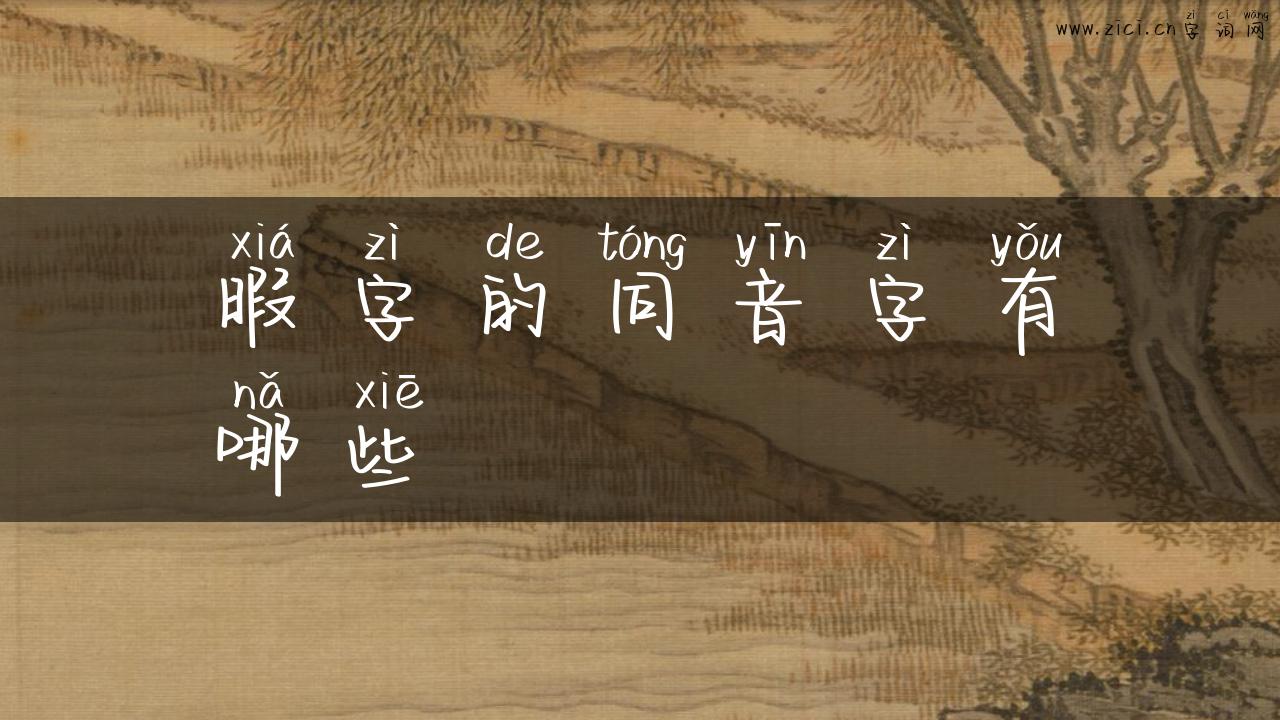 zì cí wǎng
www.zici.cn字词网
xiá zì de tóng yīn zì yǒu
暇字的同音字有
nǎ xiē
哪些